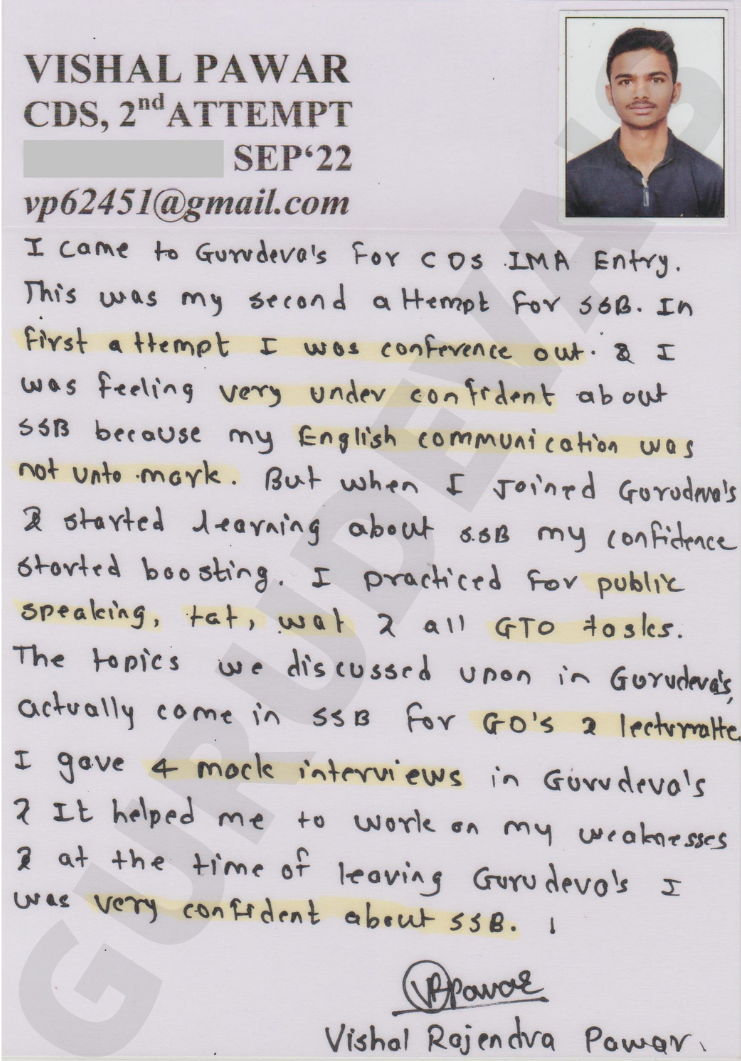 VISHAL PAWAR
CDS, 2nd ATTEMPT
SEP‘22
vp62451@gmail.com
I came to Gurudeva's for CDS IMA Entry.
This was my second attempt for SSB. In
first attempt I was conference out. & I
was feeling very under confident about
SSB because my English communication was
not unto mark. But when I Joined Gurudeva's
& started learning about SSB my confidence
started boosting. I practiced for public
speaking, tat, wat & all GTO tasks.
The topics we discussed upon in Gurudeva's,
actually come in SSB for GD's & lecturratte.
I gave 4 mock interviews in Gurudeva's
& It helped me to work on my weaknesses
& at the time of leaving Gurudeva's I
was very confident about SSB.
VRPawar
Vishal Rajendra Pawar.
GURUDEVA'S